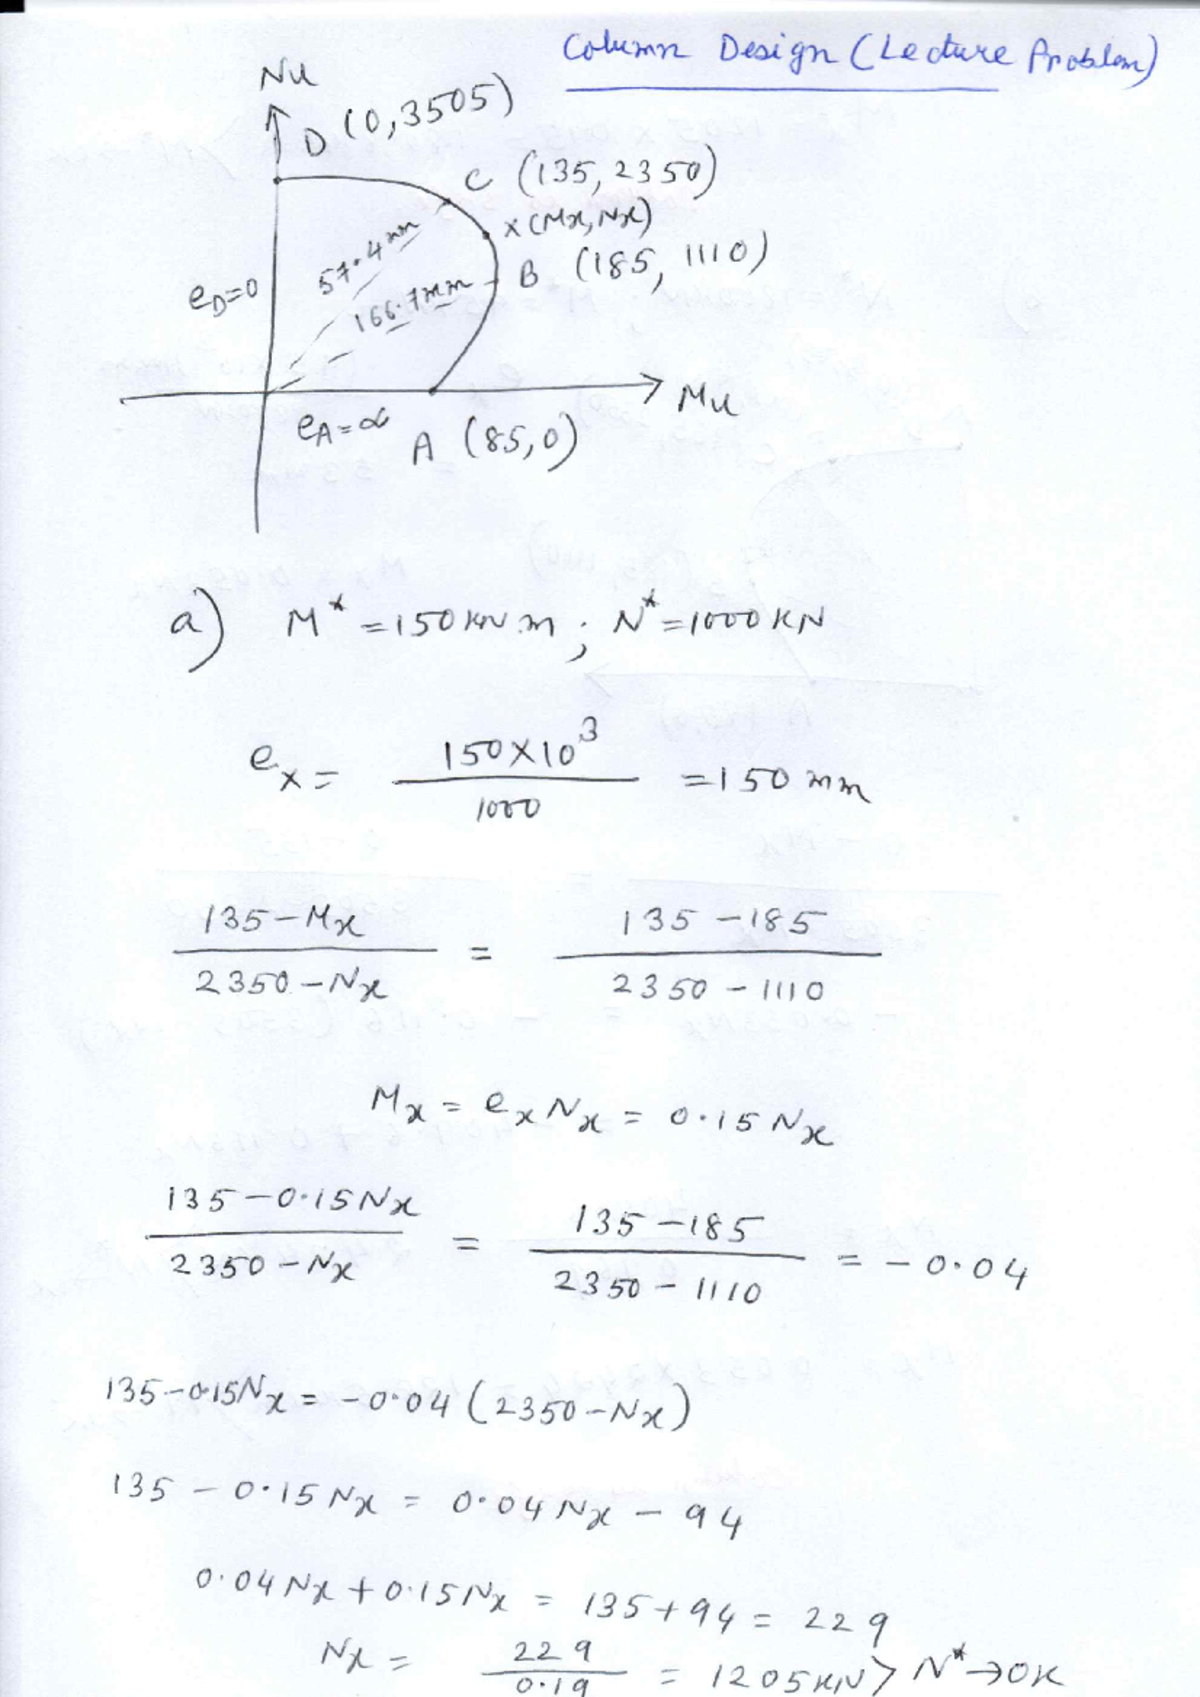 Column Design (Lecture Problem)
Nu
D (0,3505)
C (135, 2350)
x (Mx, Nx)
B (185, 1110)
57.4mm
166.7mm
eD=0
Mu
eA=∝
A (85,0)
a) M* =150 KN.m ; N* =1000 KN
ex = 150×10³ / 1000 = 150 mm
135-Mx / 2350-Nx = 135-185 / 2350-1110
Mx = ex Nx = 0.15 Nx
135-0.15Nx / 2350-Nx = 135-185 / 2350-1110 = -0.04
135-0.15Nx = -0.04(2350-Nx)
135 - 0.15Nx = 0.04Nx - 94
0.04Nx + 0.15Nx = 135+94 = 229
Nx = 229 / 0.19 = 1205KN > N* → OK